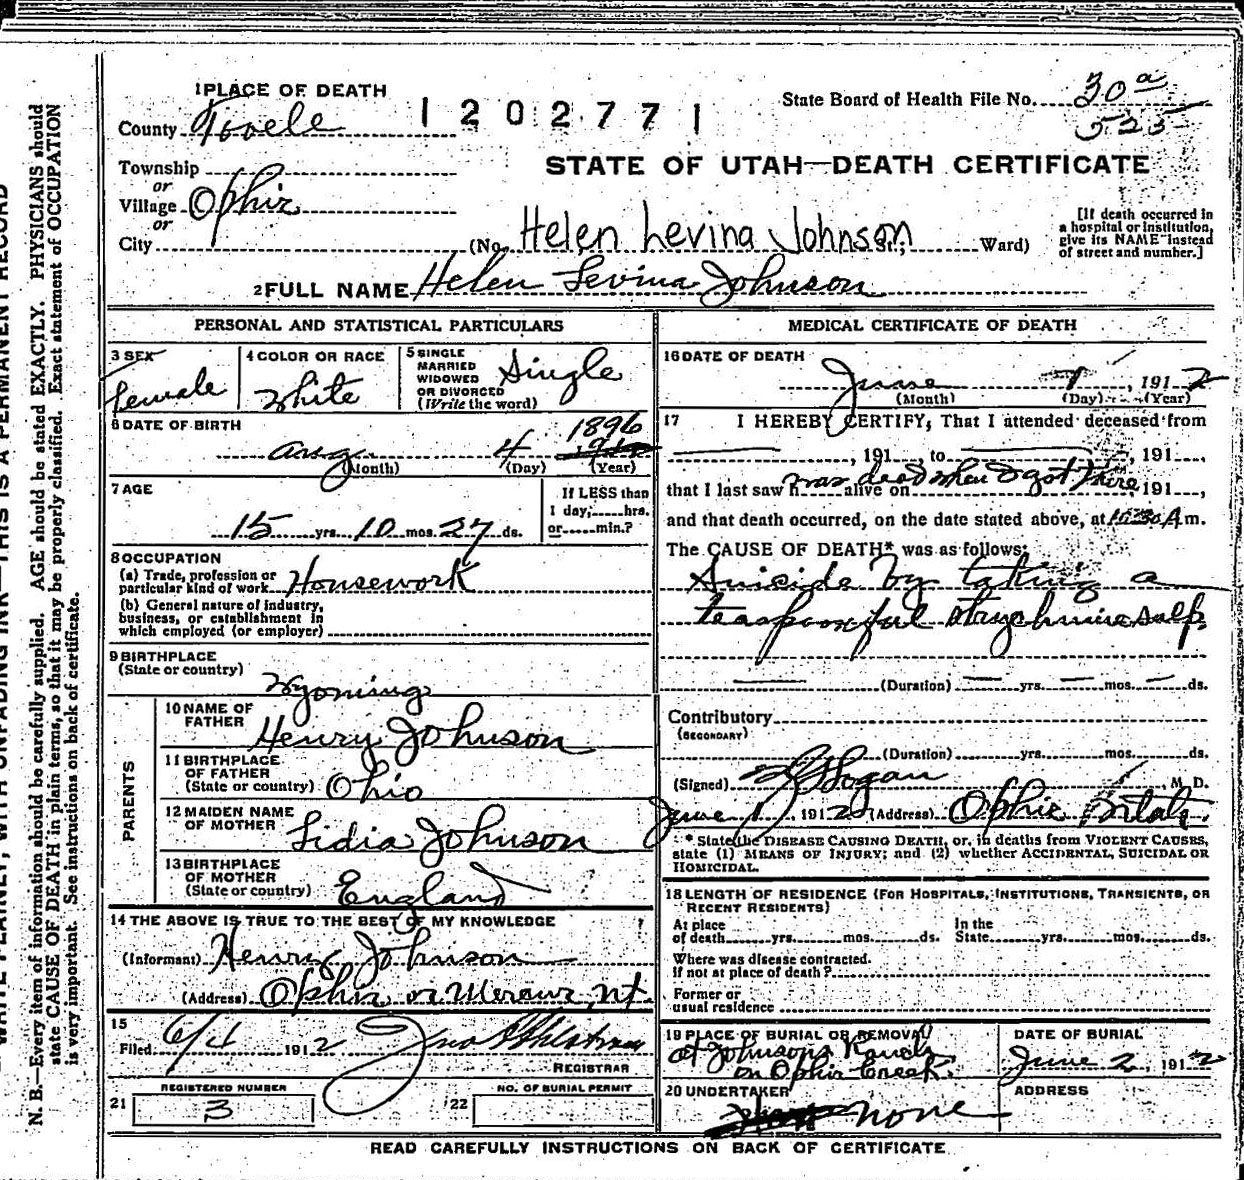 1 PLACE OF DEATH
County Tooele
1202771
State Board of Health File No. 30a
525
STATE OF UTAH—DEATH CERTIFICATE
Township
or
Village Ophir
or
City
(No. Helen Levina Johnson Ward)
[If death occurred in
a hospital or institution,
give its NAME instead
of street and number.]
2 FULL NAME Helen Levina Johnson
PERSONAL AND STATISTICAL PARTICULARS
3 SEX
female
4 COLOR OR RACE
White
5 SINGLE
MARRIED
WIDOWED
OR DIVORCED
(Write the word)
Single
6 DATE OF BIRTH
1896
Aug 4
(Month) (Day) (Year)
7 AGE
15 yrs. 10 mos. 27 ds.
If LESS than
1 day, hrs.
or min.?
8 OCCUPATION
(a) Trade, profession or
particular kind of work Housework
(b) General nature of industry,
business, or establishment in
which employed (or employer)
9 BIRTHPLACE
(State or country)
Wyoming
PARENTS
10 NAME OF
FATHER
Henry Johnson
11 BIRTHPLACE
OF FATHER
(State or country) Ohio
12 MAIDEN NAME
OF MOTHER
Lidia Johnson
13 BIRTHPLACE
OF MOTHER
(State or country) England
14 THE ABOVE IS TRUE TO THE BEST OF MY KNOWLEDGE
(Informant) Henry Johnson
(Address) Ophir or Mercur, Ut.
15
Filed 6/4 1912
REGISTRAR
REGISTERED NUMBER
21 3
NO. OF BURIAL PERMIT
22
MEDICAL CERTIFICATE OF DEATH
16 DATE OF DEATH
June 1, 1912
(Month) (Day) (Year)
17 I HEREBY CERTIFY, That I attended deceased from
, 191 , to , 191 ,
that I last saw h was dead when I got there alive on 191 ,
and that death occurred, on the date stated above, at 10:30 A.m.
The CAUSE OF DEATH* was as follows:
Suicide by taking a
teaspoonful strychnine sulp.
(Duration) yrs. mos. ds.
Contributory
(SECONDARY)
(Duration) yrs. mos. ds.
(Signed) Hogan, M. D.
June 1, 1912 (Address) Ophir Utah
* State the DISEASE CAUSING DEATH, or, in deaths from VIOLENT CAUSES,
state (1) MEANS OF INJURY; and (2) whether ACCIDENTAL, SUICIDAL OR
HOMICIDAL.
18 LENGTH OF RESIDENCE (FOR HOSPITALS, INSTITUTIONS, TRANSIENTS, OR
RECENT RESIDENTS)
At place
of death yrs. mos. ds.
In the
State yrs. mos. ds.
Where was disease contracted.
If not at place of death?
Former or
usual residence
19 PLACE OF BURIAL OR REMOVAL
at Johnsons Ranch
on Ophir Creek
DATE OF BURIAL
June 2, 1912
20 UNDERTAKER
none
ADDRESS
READ CAREFULLY INSTRUCTIONS ON BACK OF CERTIFICATE
WRITE PLAINLY, WITH UNFADING INK—THIS IS A PERMANENT RECORD
N. B.—Every item of information should be carefully supplied. AGE should be stated EXACTLY. PHYSICIANS should
state CAUSE OF DEATH in plain terms, so that it may be properly classified. Exact statement of OCCUPATION
is very important. See instructions on back of certificate.